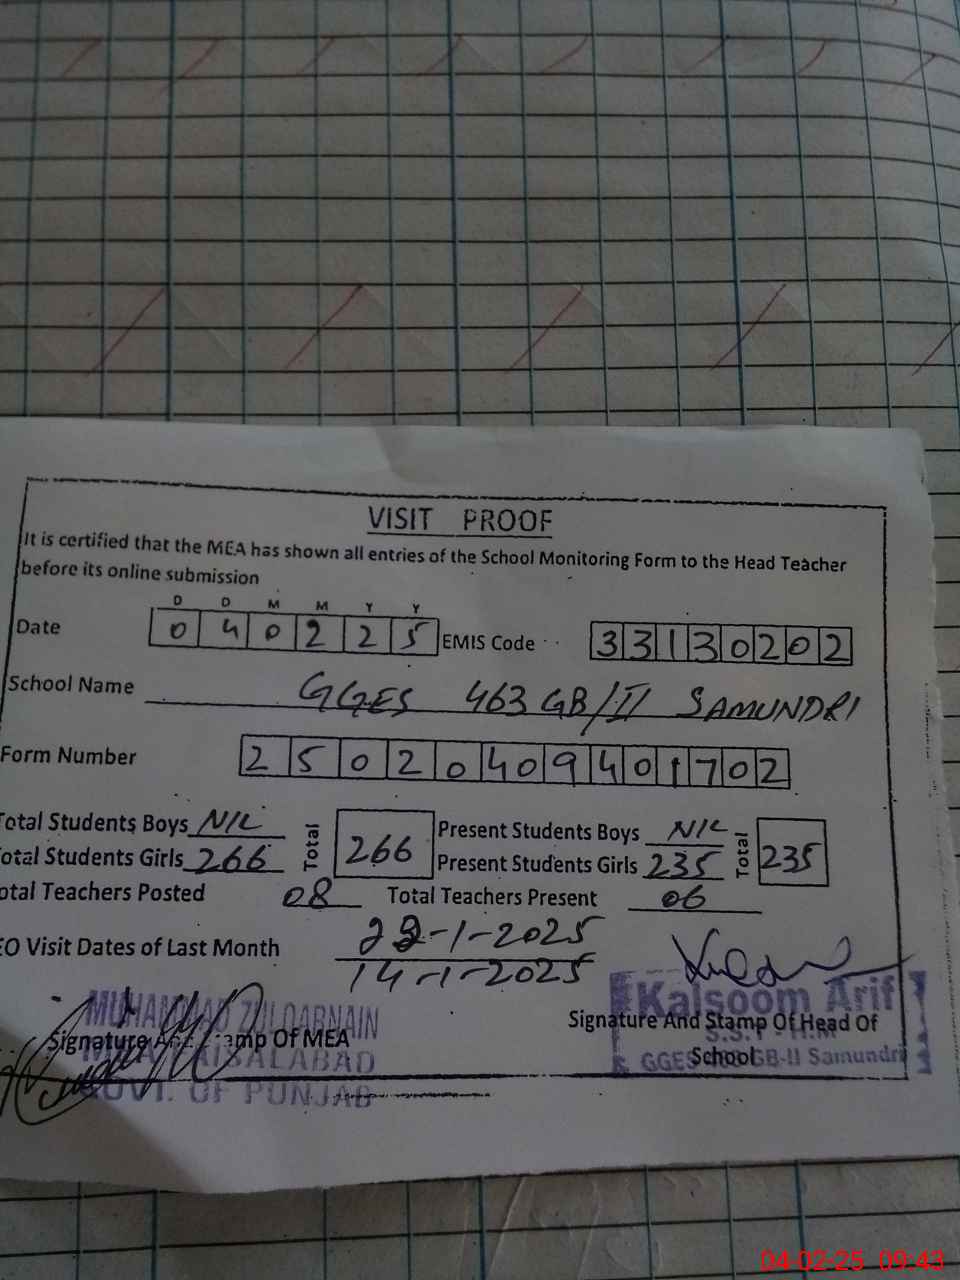 VISIT PROOF
It is certified that the MEA has shown all entries of the School Monitoring Form to the Head Teacher
before its online submission
D D M M Y Y
Date 0 4 0 2 2 5 EMIS Code 3 3 1 3 0 2 0 2
School Name GGES 463 GB/II SAMUNDRI
Form Number 2 5 0 2 0 4 0 9 4 0 1 7 0 2
Total Students Boys NIL Total 266 Present Students Boys NIL Total 235
Total Students Girls 266 Present Students Girls 235
Total Teachers Posted 08 Total Teachers Present 06
EO Visit Dates of Last Month -1-2025
14-1-2025
MUHAMMAD ZULQARNAIN
Signature And Stamp Of MEA
MEA FAISALABAD
GOVT. OF PUNJAB
Kalsoom Arif
Signature And Stamp Of Head Of
S.S.T - H.M
School
GGES GB-II Samundri
04-02-25 09:43